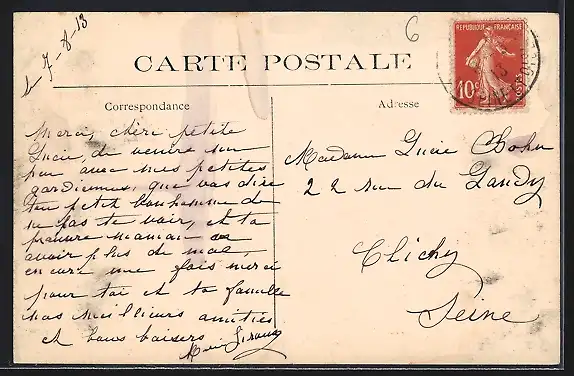 Le 7-8-13
6
CARTE POSTALE
REPUBLIQUE FRANÇAISE
10c
Correspondance
Adresse
Merci, chère petite
Lucie, de venir un
peu avec mes petites
gardiennes, que vas dire
ton petit bonhomme de
ne pas te voir, et ta
pauvre maman
avoir plus de mal,
encore une fois merci
pour toi et ta famille
nos meilleurs amitiés
et bons baisers
Madame Lucie Bohn
22 rue du Landy
Clichy
Seine